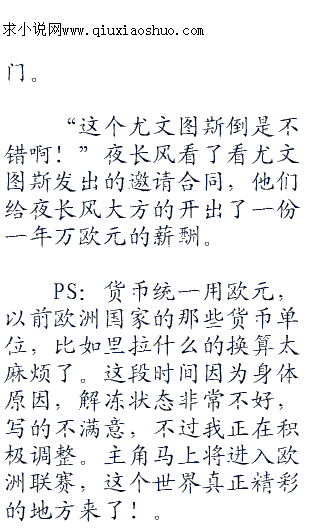 求小说网www.qiuxiaoshuo.com
门。
“这个尤文图斯倒是不
错啊！”夜长风看了看尤文
图斯发出的邀请合同，他们
给夜长风大方的开出了一份
一年万欧元的薪酬。
PS：货币统一用欧元，
以前欧洲国家的那些货币单
位，比如里拉什么的换算太
麻烦了。这段时间因为身体
原因，解冻状态非常不好，
写的不满意，不过我正在积
极调整。主角马上将进入欧
洲联赛，这个世界真正精彩
的地方来了！。